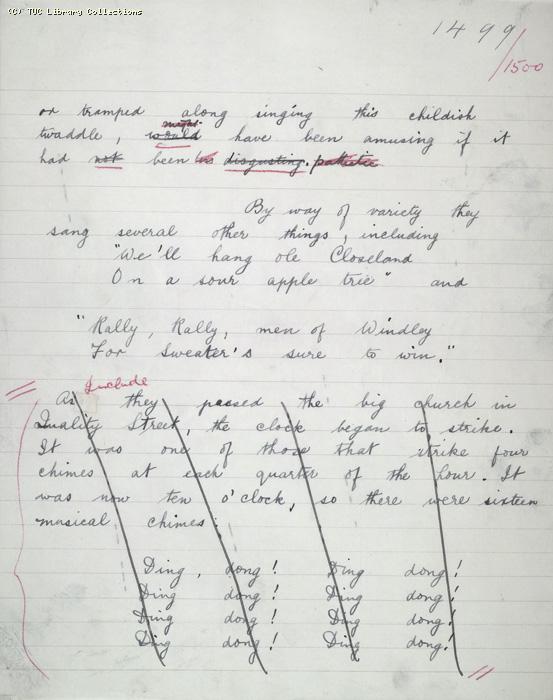 (C) TUC Library Collections
1499/1500
or tramped along singing this childish
might
twaddle, would have been amusing if it
had not been so disgusting. pathetic
By way of variety they
sang several other things, including
"We'll hang ole Closeland
On a sour apple tree" and
"Rally, Rally, men of Windley
For Sweater's sure to win."
Include
As they passed the big church in
Quality Street, the clock began to strike.
It was one of those that strike four
chimes at each quarter of the hour. It
was now ten o'clock, so there were sixteen
musical chimes:
Ding, dong! Ding dong!
Ding dong! Ding dong!
Ding dong! Ding dong!
Ding dong! Ding dong!